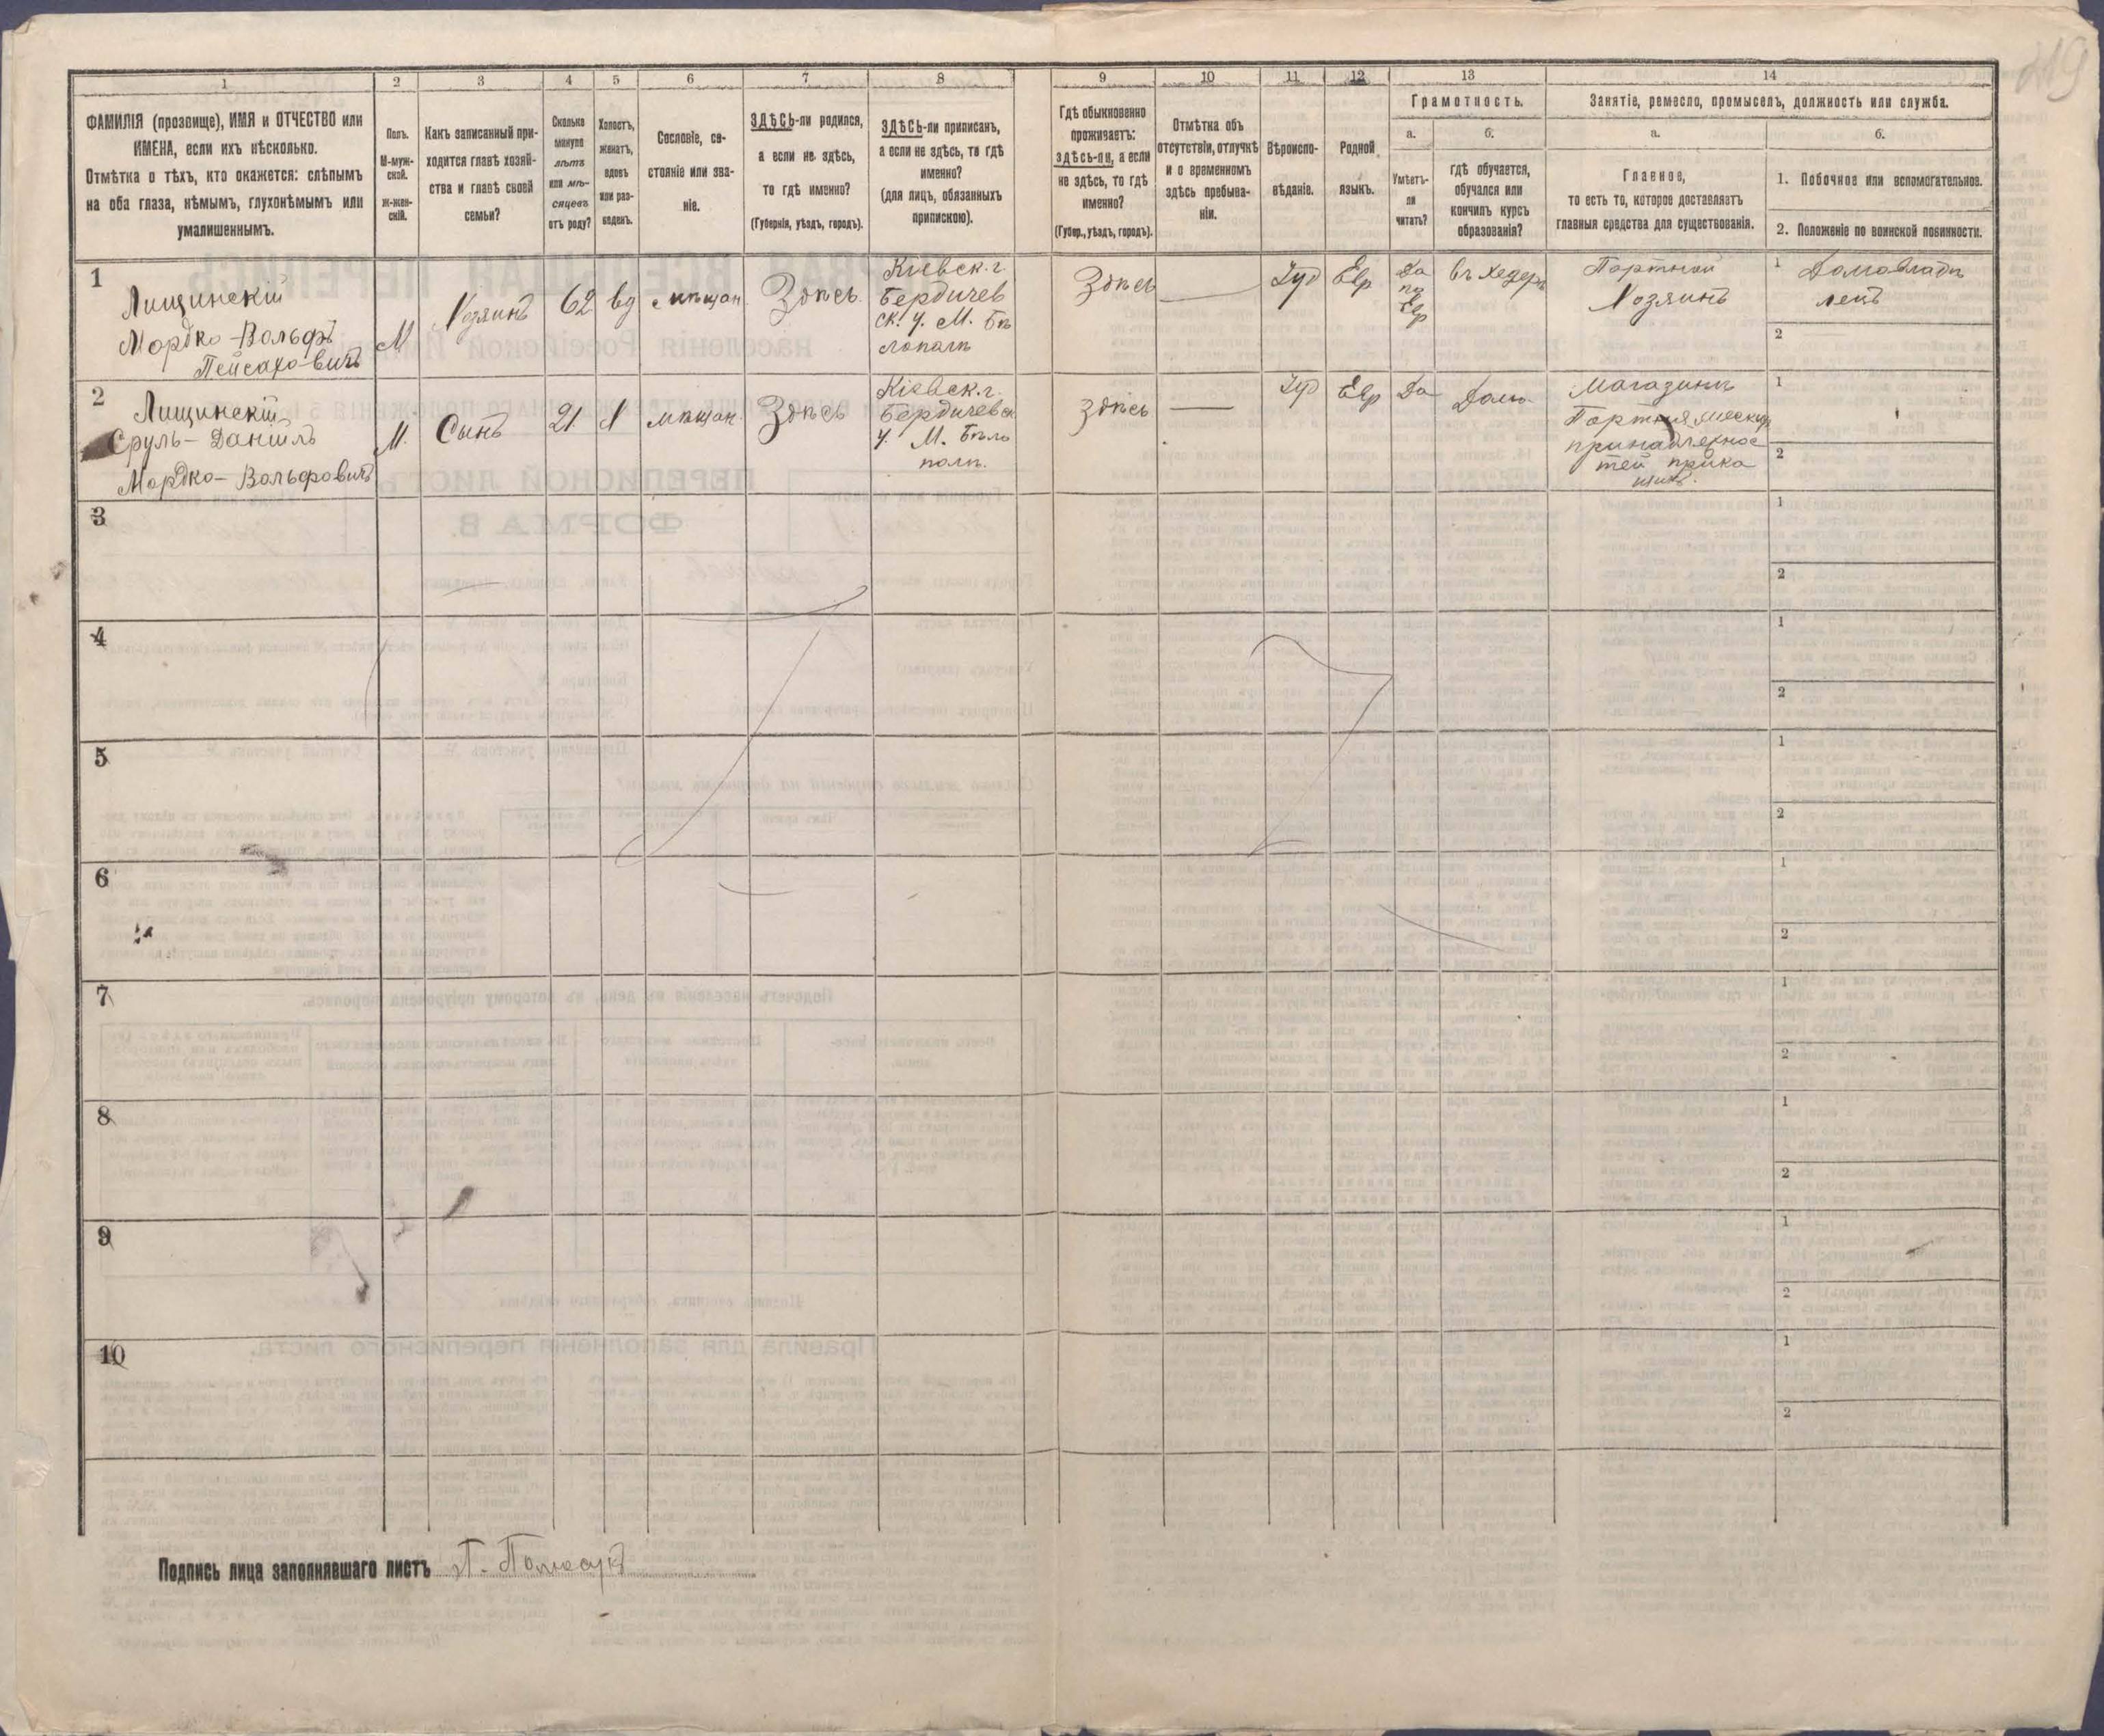 219
1 2 3 4 5 6 7 8 9 10 11 12 13 14
ФАМИЛІЯ (прозвище), ИМЯ и ОТЧЕСТВО или
ИМЕНА, если ихъ нѣсколько.
Отмѣтка о тѣхъ, кто окажется: слѣпымъ
на оба глаза, нѣмымъ, глухонѣмымъ или
умалишеннымъ.
Полъ.
М-муж-
ской.
ж-жен-
скій.
Какъ записанный при-
ходится главѣ хозяй-
ства и главѣ своей
семьи?
Сколько
минуло
лѣтъ
или мѣ-
сяцевъ
отъ роду?
Холостъ,
женатъ,
вдовъ
или раз-
веденъ.
Сословіе, со-
стояніе или зва-
ніе.
ЗДѢСЬ-ли родился,
а если не здѣсь,
то гдѣ именно?
(Губернія, уѣздъ, городъ).
ЗДѢСЬ-ли приписанъ,
а если не здѣсь, то гдѣ
именно?
(для лицъ, обязанныхъ
припискою).
Гдѣ обыкновенно
проживаетъ:
здѣсь-ли, а если
не здѣсь, то гдѣ
именно?
(Губер., уѣздъ, городъ).
Отмѣтка объ
отсутствіи, отлучкѣ
и о временномъ
здѣсь пребыва-
ніи.
Вѣроиспо-
вѣданіе.
Родной
языкъ.
Грамотность.
а.
Умѣетъ-
ли
читать?
б.
гдѣ обучается,
обучался или
кончилъ курсъ
образованія?
Занятіе, ремесло, промыселъ, должность или служба.
а.
Главное,
то есть то, которое доставляетъ
главныя средства для существованія.
б.
1. Побочное или вспомогательное.
2. Положеніе по воинской повинности.
1
Лищинскій
Мордко-Вольфъ
Пейсахо-вичъ
М
Хозяинъ
62
вд
мѣщан
Здѣсь.
Кіевск. г
Бердичев
ск. у. М. Бѣ
лопаль
Здѣсь
Іуд
Евр
Да
по
Евр
въ хедерѣ
Портной
Хозяинъ
1 Домовладѣ
лецъ
2
2
Лищинскій
Сруль-Даніилъ
Мордко-Вольфовичъ
М.
Сынъ
21.
Х
мѣщан.
Здѣсь
Кіевск. г.
Бердичевск.
у. М. Бѣло
поль.
Здѣсь
Іуд
Евр
Да
Дома.
магазинъ
Портняжески
принадлежнос
тей прика
щикъ.
1
2
3
1
2
4
1
2
5
1
2
6
1
2
7
1
2
8
1
2
9
1
2
10
1
2
Подпись лица заполнявшаго листъ